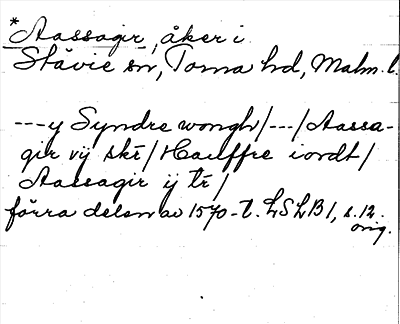 *Aassagir, åker i
Stävie sn, Torna hd, Malm. l.
---y Syndre wongh/---/Aassa-
gir vij skr/Hauffre iordt/
Aassagir ij tr/
förra delen av 1570-t. LSLB1, s. 12.
orig.